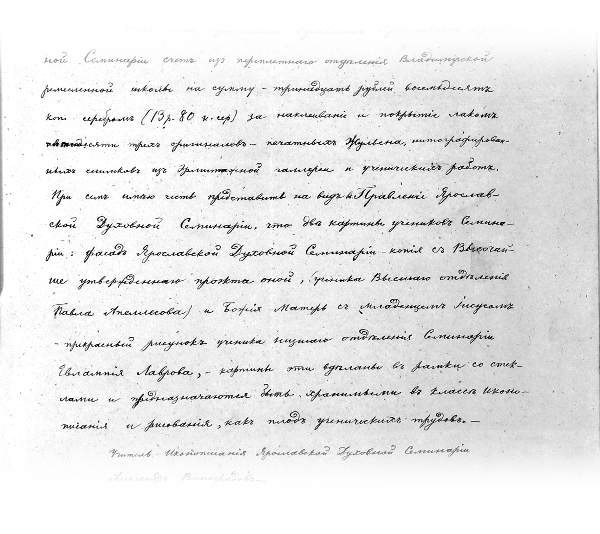 ной Семинаріи счетъ изъ переплетнаго отдѣленія Владимірской
ремесленной школы на сумму – тринадцать рублей восемьдесятъ
коп. серебромъ (13 р. 80 к. сер.) за наклеиваніе и покрытіе лакомъ
трехъ оригиналовъ – печатныхъ Жульена, литографирован-
ныхъ снимковъ изъ Эрмитажной галлереи и ученическихъ работъ.
При семъ имѣю честь представить на видъ Правленію Ярослав-
ской Духовной Семинаріи, что двѣ картины учениковъ Семина-
ріи: фасадъ Ярославской Духовной Семинаріи – копія съ Высочай-
ше утвержденнаго проэкта оной, (ученика Высшаго отдѣленія
Павла Апеллесова) и Божія Матерь съ младенцемъ Іисусомъ
– прекрасный рисунокъ ученика низшаго отдѣленія Семинаріи
Евлампія Лаврова, – картины эти вдѣланы въ рамки со стек-
лами и предназначаются быть хранимыми въ классѣ Иконо-
писанія и рисованія, какъ плодъ ученическихъ трудовъ. –
Учитель Иконописанія Ярославской Духовной Семинаріи
Александръ Виноградовъ